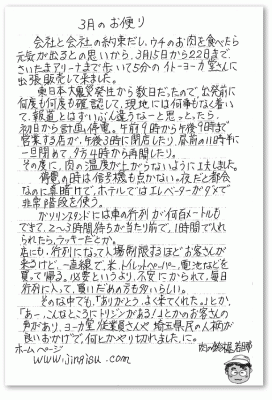 3月のお便り
会社と会社の約束だし、ウチのお肉を食べたら
元気が出るとの思いから、3月15日から22日まで、
さいたまアリーナまで歩いて5分のイトーヨーカ堂さんに
出張販売して来ました。
東日本大震災発生から数日だったので、出発前に
何度も何度も確認して、現地には何事もなく着い
て、報道とはずいぶん違うなーと思ったら、
初日から計画停電。午前9時から午後9時まで
営業する店が、午後3時に閉店したり、昼前の11時半に
一旦閉めて、夕方4時から再開したり。
その度に、肉の温度が上がらないように大忙し。
停電の時は信号機も点かない。夜だと都会
なのに真暗けで、ホテルではエレベーターがダメで
非常階段を使う。
ガソリンスタンドには車の行列が何百メートルも
できて、2〜3時間待ちが当たり前で、1時間で入れ
られたら、ラッキーだとか。
店にも、行列になって入場制限するほどお客さんが
来るけど、一直線で、米、トイレットペーパー、電池などを
買って帰る。必要というより、不安にかられて、毎日
行列に入って、買いだめの方も多いらしい。
その中でも、「ありがとう、よく来てくれた。」とか、
「あー、こんなところにトリジンがある!」とかのお客さんの
声があり、ヨーカ堂従業員さんや 埼玉県民の人柄が
良いおかげで、何とかやり切れました。に。
ホームページ
www.jingisu.com